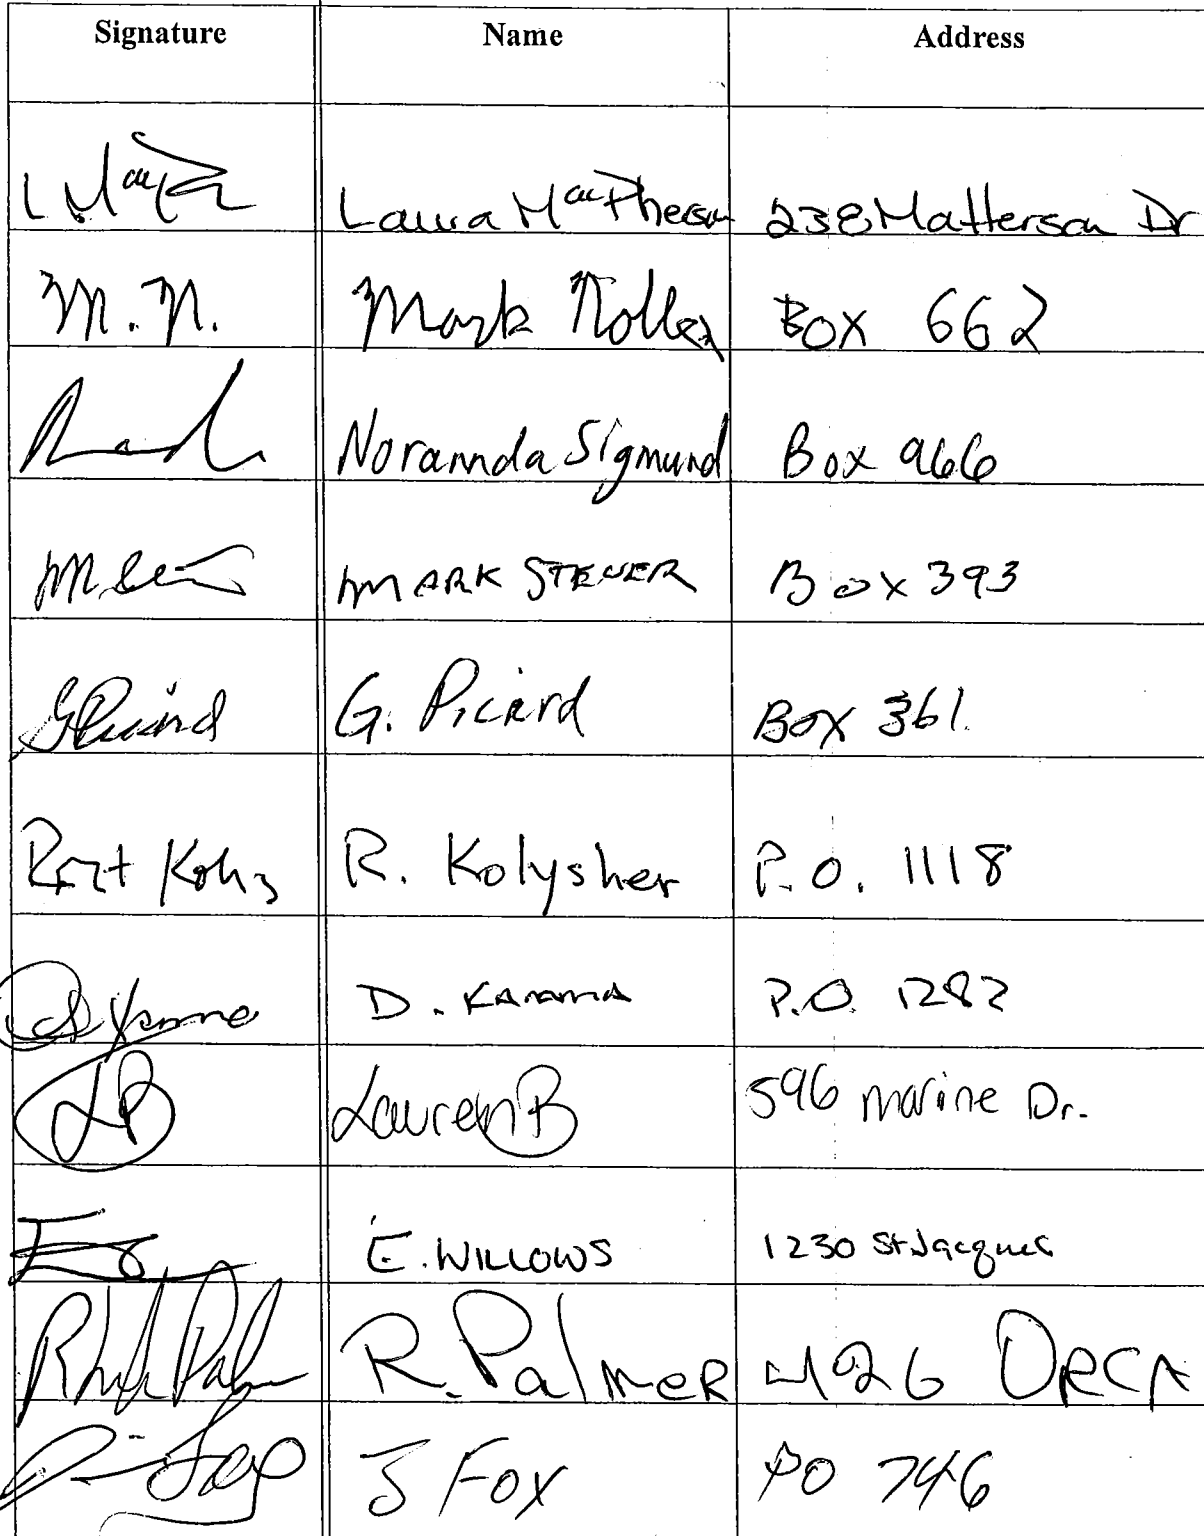 Signature Name Address
Laura MacPherson 238 Matterson Dr
M.N. Mark Box 662
Norannda Sigmund Box 966
MARK STEUER Box 393
GPicard G. Picard Box 361
Kolys R. Kolysher P.O. 1118
D. KANMA P.O. 1282
LB Lauren B 596 marine Dr.
E. WILLOWS 1230 St Jacques
R. PalmeR 426 ORCA
J Fox PO 746